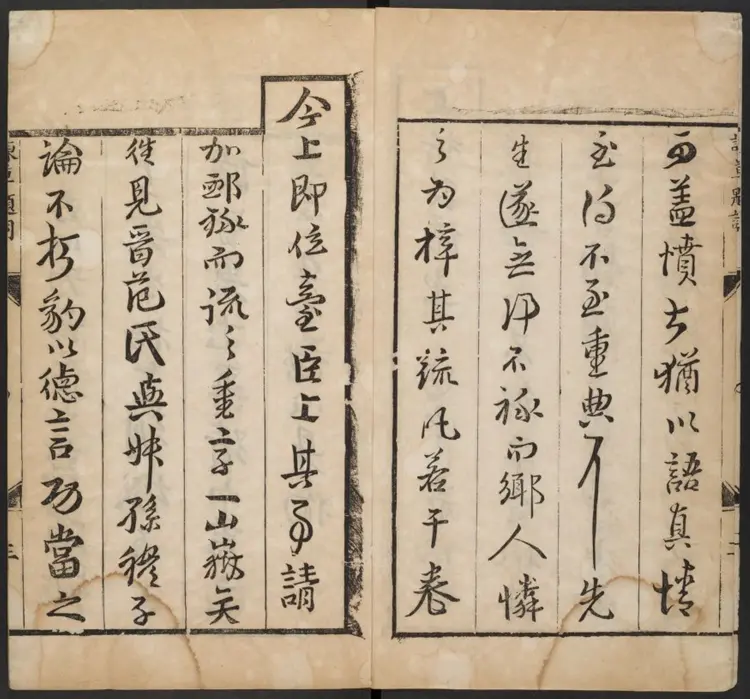 蓋憤猶以語真情
至得不至重典先
生遂無不祿而鄉人憐
之為梓其疏凡若干卷
今上即位臺臣上其事請
加卹而疏之一山嶽矣
往見晉范氏與叔孫穆子
論不朽豹以德言功當之